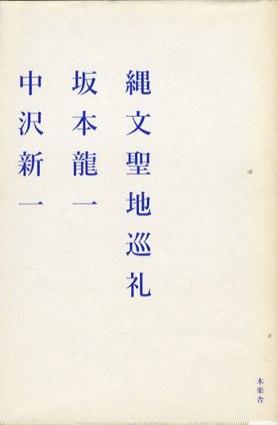 縄文聖地巡礼
坂本龍一
中沢新一
木楽舎